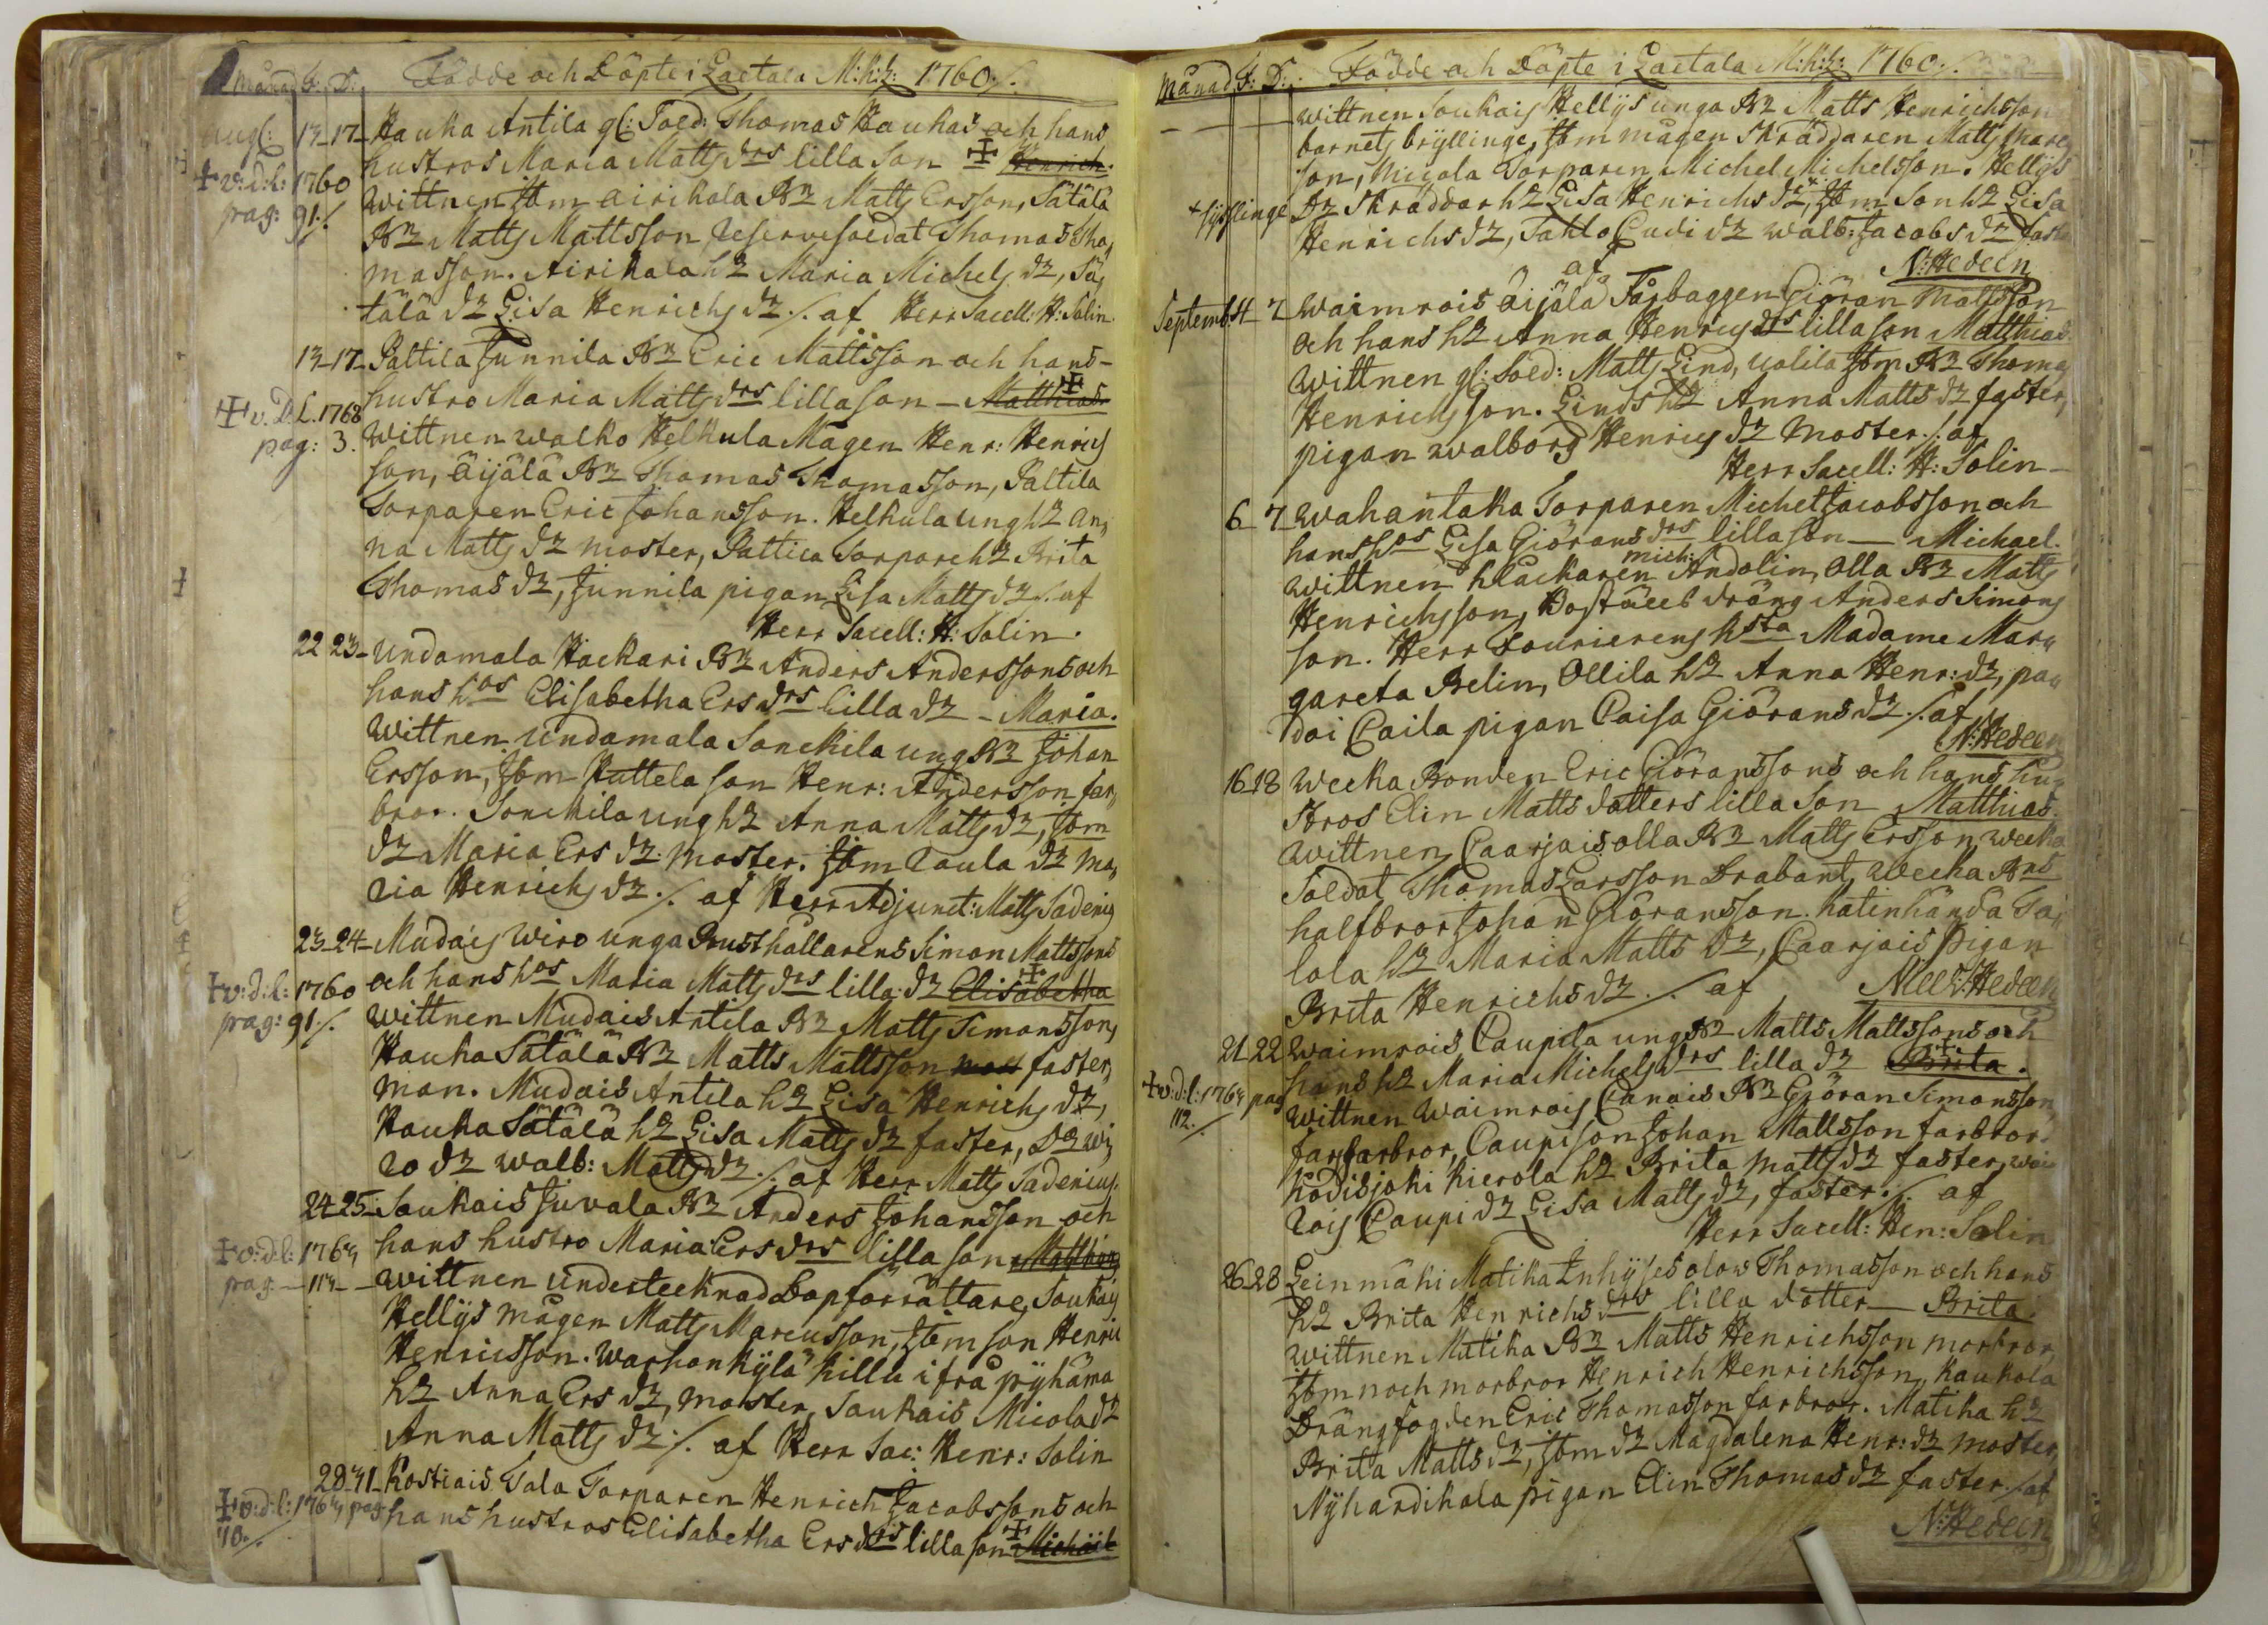 Månad F: D: Födde och Döpte i Laitala M:k:l: 1760 ./.
Aug: 13-17- Hauka Antila gl: Sold: Thomas Haukas och hans
hustros Maria Matts drs lilla son ✝ Henrich.
✝ v: d: l: 1760
pag: 91 ./.
Wittnen Ibm Airikala Bn Matts Ersson, Sätälä
Bn Matts Mattsson, Reserve soldat Thomas Tho,
masson. Airikala h Maria Michels dr, Sä,
tälä dr Lisa Henrichs dr ./. af Herr Sacell: H: Solin.
13-17- Pattila Junnila Bn Eric Mattsson och hans-
hustro Maria Matts drs lilla son - ✝ Matthias
✝ v. D. L. 1768
pag: 3.
Wittnen Walko Helkula Mågen Henr: Henrics
son, Äijälä Bn Thomas Thomasson, Pattila
Torparen Eric Johansson. Helkula ung h An,
na Matts dr moster, Pattila Torpare h Brita
Thomas dr, Junnila pigan Lisa Matts dr ./. af
Herr Sacell: H: Solin.
22 23- Undamala Häckari Bn Anders Anderssons och
hans hos Elisabetha Ers drs lilla dr - Maria.
Wittnen Undamala Sonckila ung Bn Johan
Ersson, Ibm Huttela son Henr: Andersson far,
bror. Sonckila ung h Anna Matts dr, Ibm
dr Maria Ers dr: moster. Ibm Caula dr Ma,
ria Henrichs dr ./. af Herr Adjunct: Matts Sadenius
23-24- Mudais Wiro unga Rusthållarens Simon Mattssons
och hans hos Maria Matts drs lilla dr ✝ Elisabetha
✝ v: d: l: 1760
pag: 91 ./.
Wittnen Mudais Antila Bn Matts Simonsson,
Hauka Sätälä Bn Matts Mattsson faster,
man. Mudais Antila h Lisa Henrichs dr,
Hauka Sätälä h Lisa Matts dr faster, Do Wi,
ro dr Walb: Matts dr ./. af Herr Matts Sadenius.
24 25- Soukais Juvala Bn Anders Johansson och
hans hustro Maria Ers drs lilla son Matthias
✝ v: d: l: 1764
pag. - 113 -
Wittnen undertecknad Dopförrättare, Soukais
Hellÿs mågen Matts Marcusson, Ibm son Henric
Henricsson. Warhonkÿlä Killi ifrå Pÿhämä
h Anna Ers dr, moster, Soukais Micola dr
Anna Matts dr ./. af Herr Sac: Henr: Solin
28-31- Kostiais Tala Torparen Henrich Jacobssons och
hans hustros Elisabetha Ers drs lilla son ✝ Michael
✝ v: d: l: 1764 pag.
Månad F: D: Födde och Döpte i Laitala M:k:l: 1760 ./.
Wittnen Soukais Hellÿs unga Bn Matts Henrichsson
barnets brÿllinge, Ibm mågen Skräddaren Matts Marc,
son, Micola Torparen Michel Michelsson. Hellÿs
+ sÿsslinge
Dr Skräddar h Lisa Henrichs dr +, Ibm son h Lisa
Henrichs dr, Tahlo Cudi dr Walb: Jacobs dr
af N: Hedeen
Septemb: 4-7 Waimrois Äijälä Färbaggen Giöran Mattsson
och hans h Anna Henrics drs lilla son Matthias
Wittnen gl: Sold: Matts Lind, Ibm Bn Thomas
Henrichsson. Linds h Anna Matts dr faster,
pigan Walborg Henrics dr Moster ./. af
Herr Sacell: H: Solin-
6-7 Wahantaka Torparen Michel Jacobsson och
hans hos Lisa Giörans drs lilla son - Michael.
Wittnen Klåckaren mich: Andolin, Olla Bn Matts
Henrichsson, Boställs dräng Anders Simons
son. Herr Fourierens hsta Madame Mar,
gareta Belin, Ollila h Anna Henr: dr, Pa,
doi Caila pigan Caisa Giörans dr ./. af
N: Hedeen
16-18 Wecka Bonden Eric Giöranssons och hans hu,
stros Elin Matts dotters lilla son Matthias.
Wittnen, Caarjais Olla Bn Matts Ersson, Wecka
Soldat Thomas Larsson Drabant, Wecka Bns
halfbror Johan Giöransson. Katinhända Ta,
lola h Maria Matts dr, Caarjais Pigan
Brita Henrichs dr ./. af Nils: Hedeen
21-22 Waimrois Caupila ung Bn Matts Mattssons och
hans h Maria Michels drs lilla dr ✝ Brita.
✝ v: d: l: 1764 pag
112 ./.
Wittnen Waimrois Canais Bn Giöran Simonsson,
farfarbror, Caupi son Johan Mattsson farbror.
Kodisjoki Kierola h Brita Matts dr faster, Wai
rois Caupi dr Lisa Matts dr, faster ./. af
Herr Sacell: Hen: Solin
26-28 Leinmäki Matika Inhÿses Olow Thomasson och hans
h Brita Henrichs drs lilla dotter - Brita.
Wittnen Matika Bn Matts Henrichsson morbror,
Ibm noch morbror Henrich Henrichsson, Kaukola
Drängfogden Eric Thomasson farbror. Matika h
Brita Matts dr, Ibm dr Magdalena Henr: dr moster,
Nÿhardikala pigan Elin Thomas dr faster ./. af
N: Hedeen